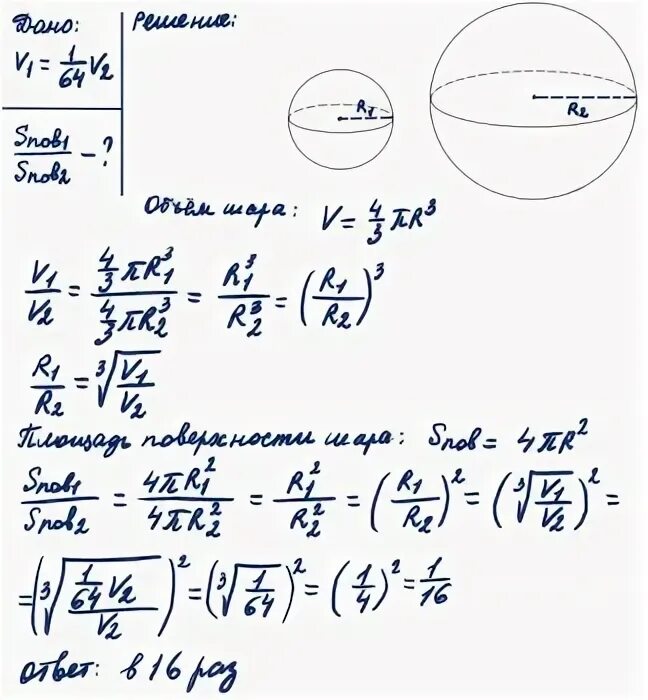 Дано:
V₁ = 1/64 V₂
Sпов1/Sпов2 - ?
Решение:
R₁
R₂
Объём шара: V = 4/3 πR³
V₁/V₂ = (4/3 πR₁³)/(4/3 πR₂³) = R₁³/R₂³ = (R₁/R₂)³
R₁/R₂ = ³√(V₁/V₂)
Площадь поверхности шара: Sпов = 4πR²
Sпов1/Sпов2 = 4πR₁²/4πR₂² = R₁²/R₂² = (R₁/R₂)² = (³√(V₁/V₂))² =
= (³√((1/64 V₂)/V₂))² = (³√(1/64))² = (1/4)² = 1/16
ответ: в 16 раз